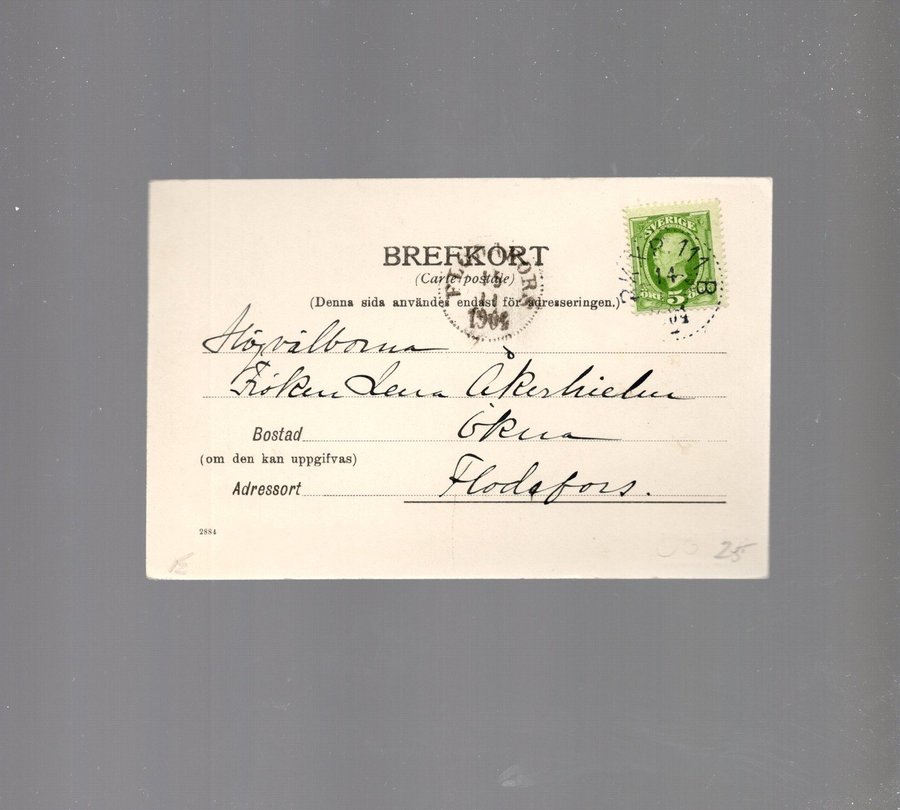 BREFKORT
(Carte postale)
(Denna sida användes endast för adresseringen.)
SVERIGE
ÖRE 5
PKXP 111 B
14
1904
Högvälborna
Fröken Lena Åkerhielm
Bostad Ökna
(om den kan uppgifvas)
Adressort Flodafors.
2884
25